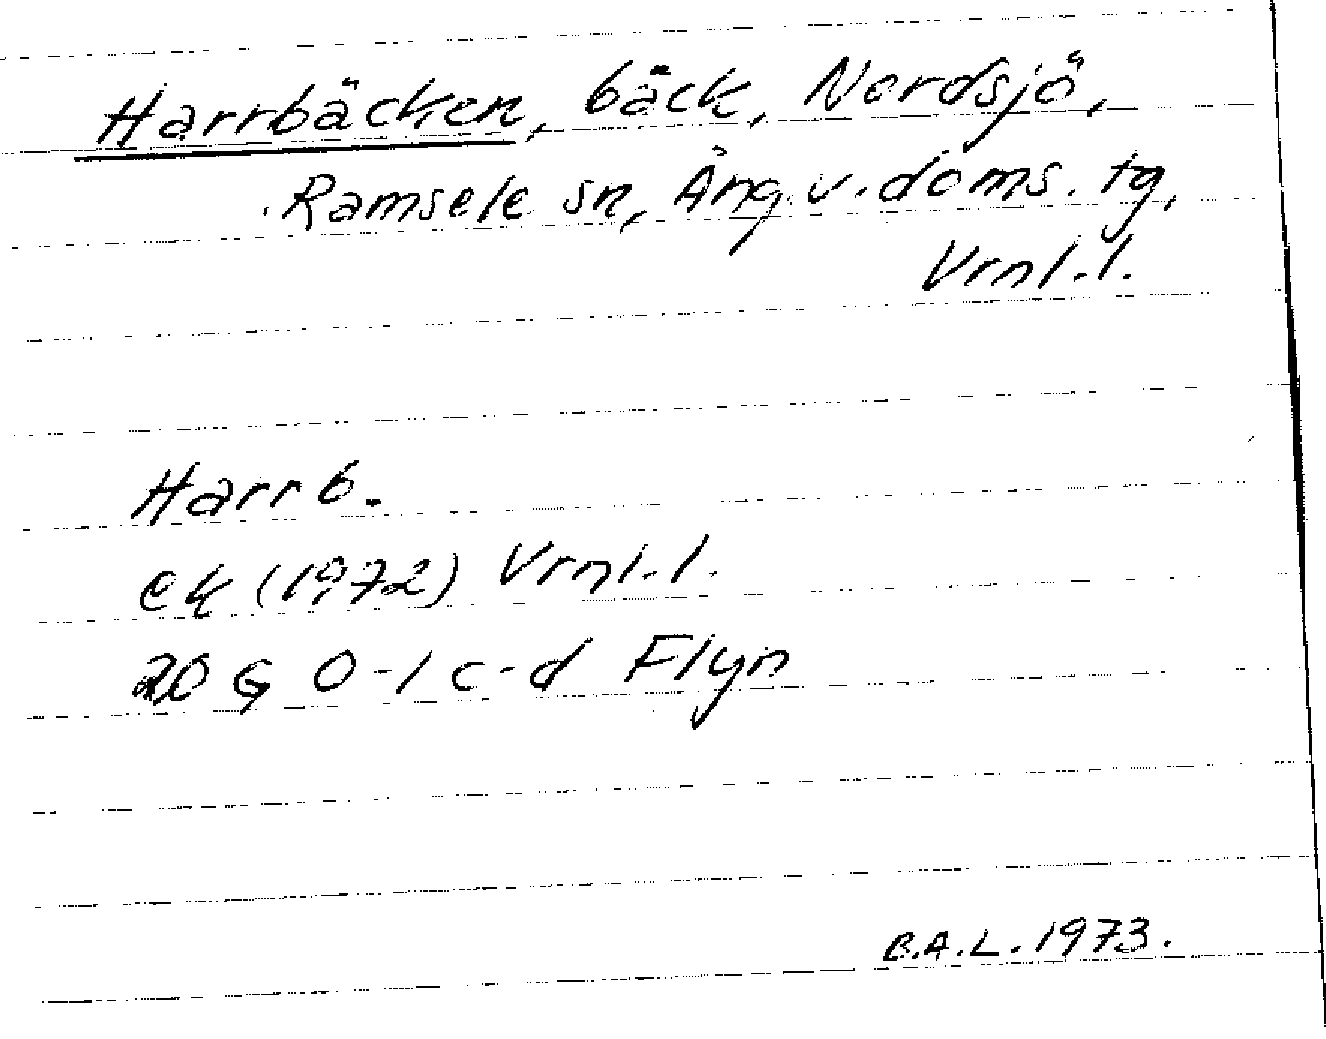 Harrbäcken, bäck, Nordsjö,
Ramsele sn, Ång. v. doms. tg,
Vrnl. l.
Harrb.
ek (1972) Vrnl. l.
20 G 0-1 c-d Flyn
B.A.L. 1973.